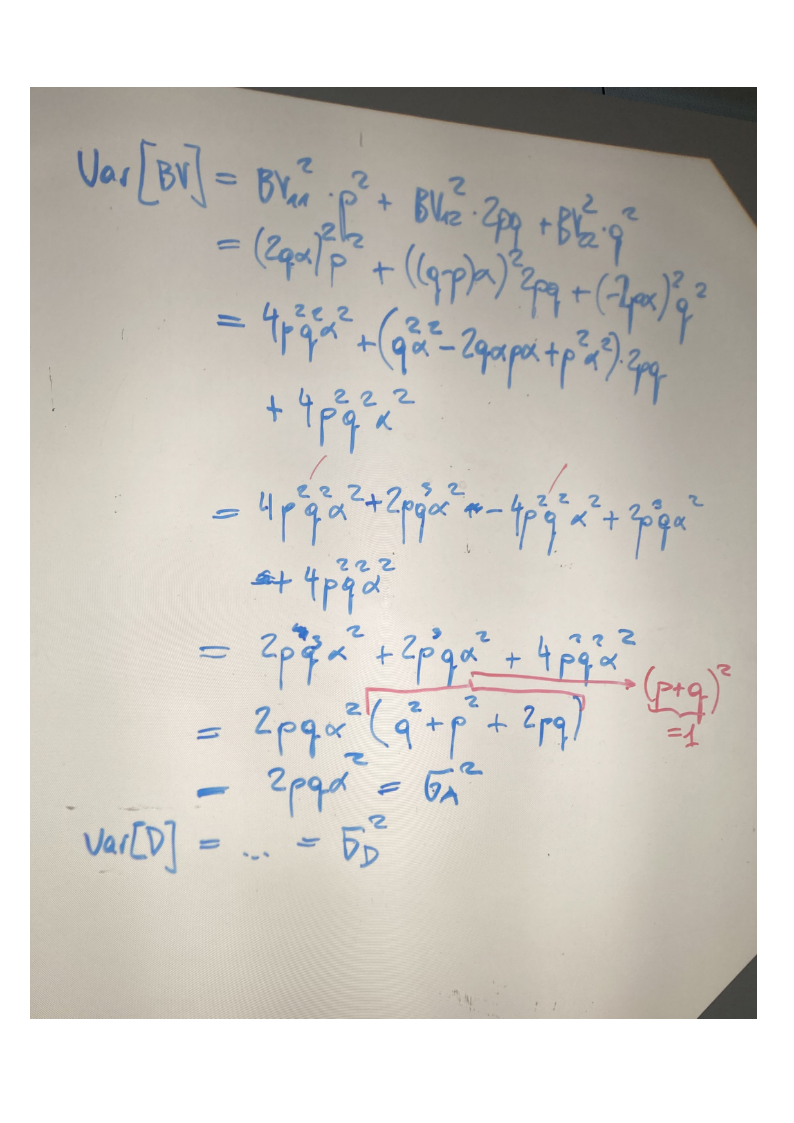 Var[BV] = BV₁₁² · p² + BV₁₂² · 2pq + BV₂₂² · q²
= (2qα)² p² + ((q-p)α)² 2pq + (-2pα)² q²
= 4p²q²α² + (q²α² - 2qαpα + p²α²) · 2pq
+ 4p²q²α²
= 4p²q²α² + 2pq³α² - 4p²q²α² + 2p³qα²
+ 4p²q²α²
= 2pq³α² + 2p³qα² + 4p²q²α²
(p+q)²
= 2pqα² (q² + p² + 2pq)
=1
= 2pqα² = σ_A²
Var[D] = ... = σ_D²